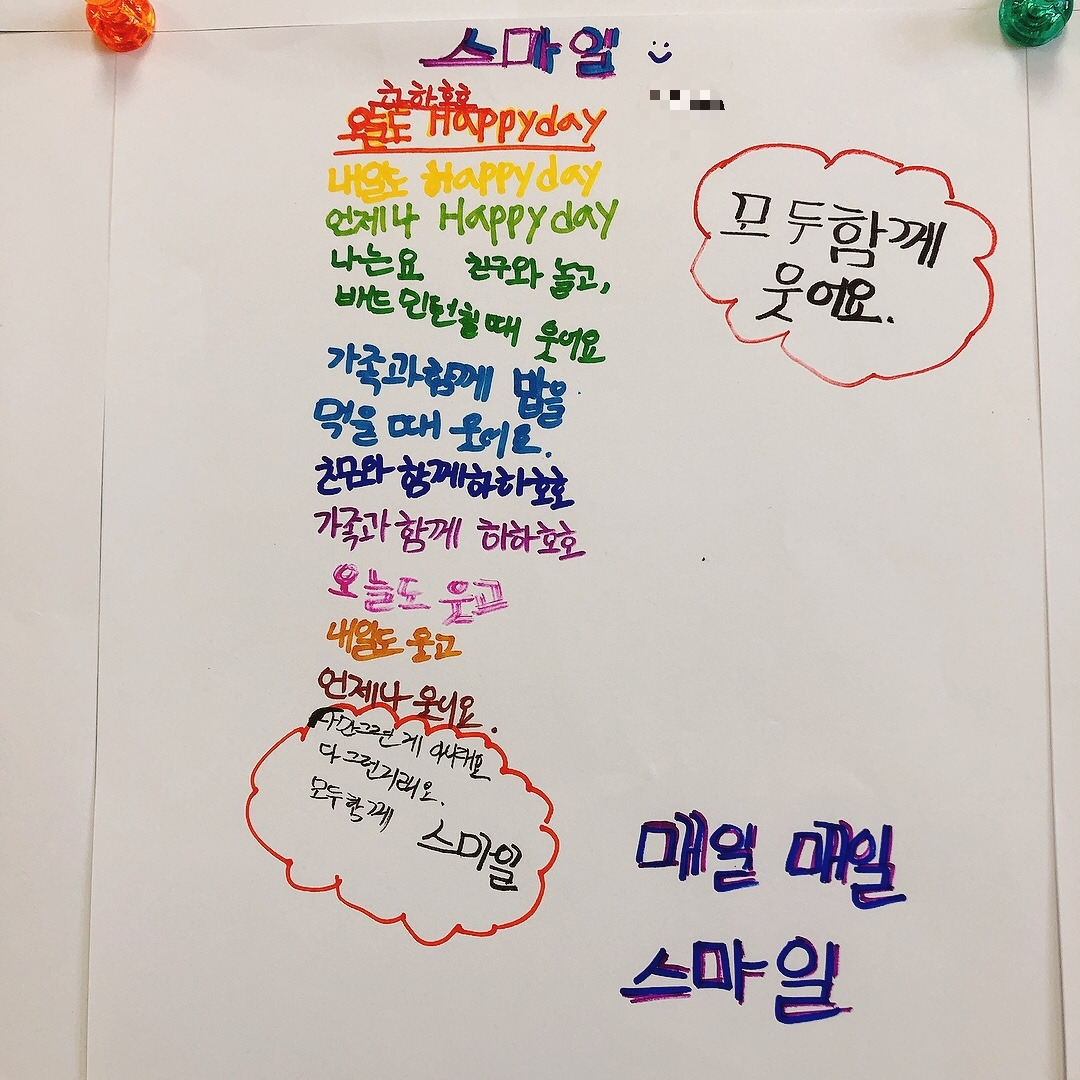 스마일
오늘도 Happyday
내일도 Happyday
언제나 Happyday
나는요 친구와 놀고,
배드민턴칠때 웃어요
가족과함께 밥을
먹을 때 웃어요.
친구와 함께하하호호
가족과 함께 하하호호
오늘도 웃고
내일도 웃고
언제나 웃어요.
다 그런거래요.
모두함께
스마일
모두함께
웃어요.
매일 매일
스마일